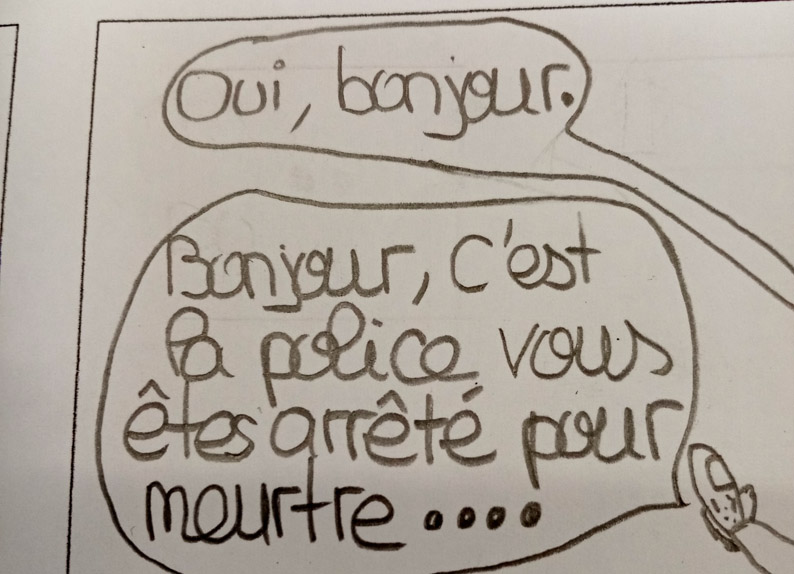 Oui, bonjour.
Bonjour, C'est
la police vous
êtes arrêté pour
meurtre....